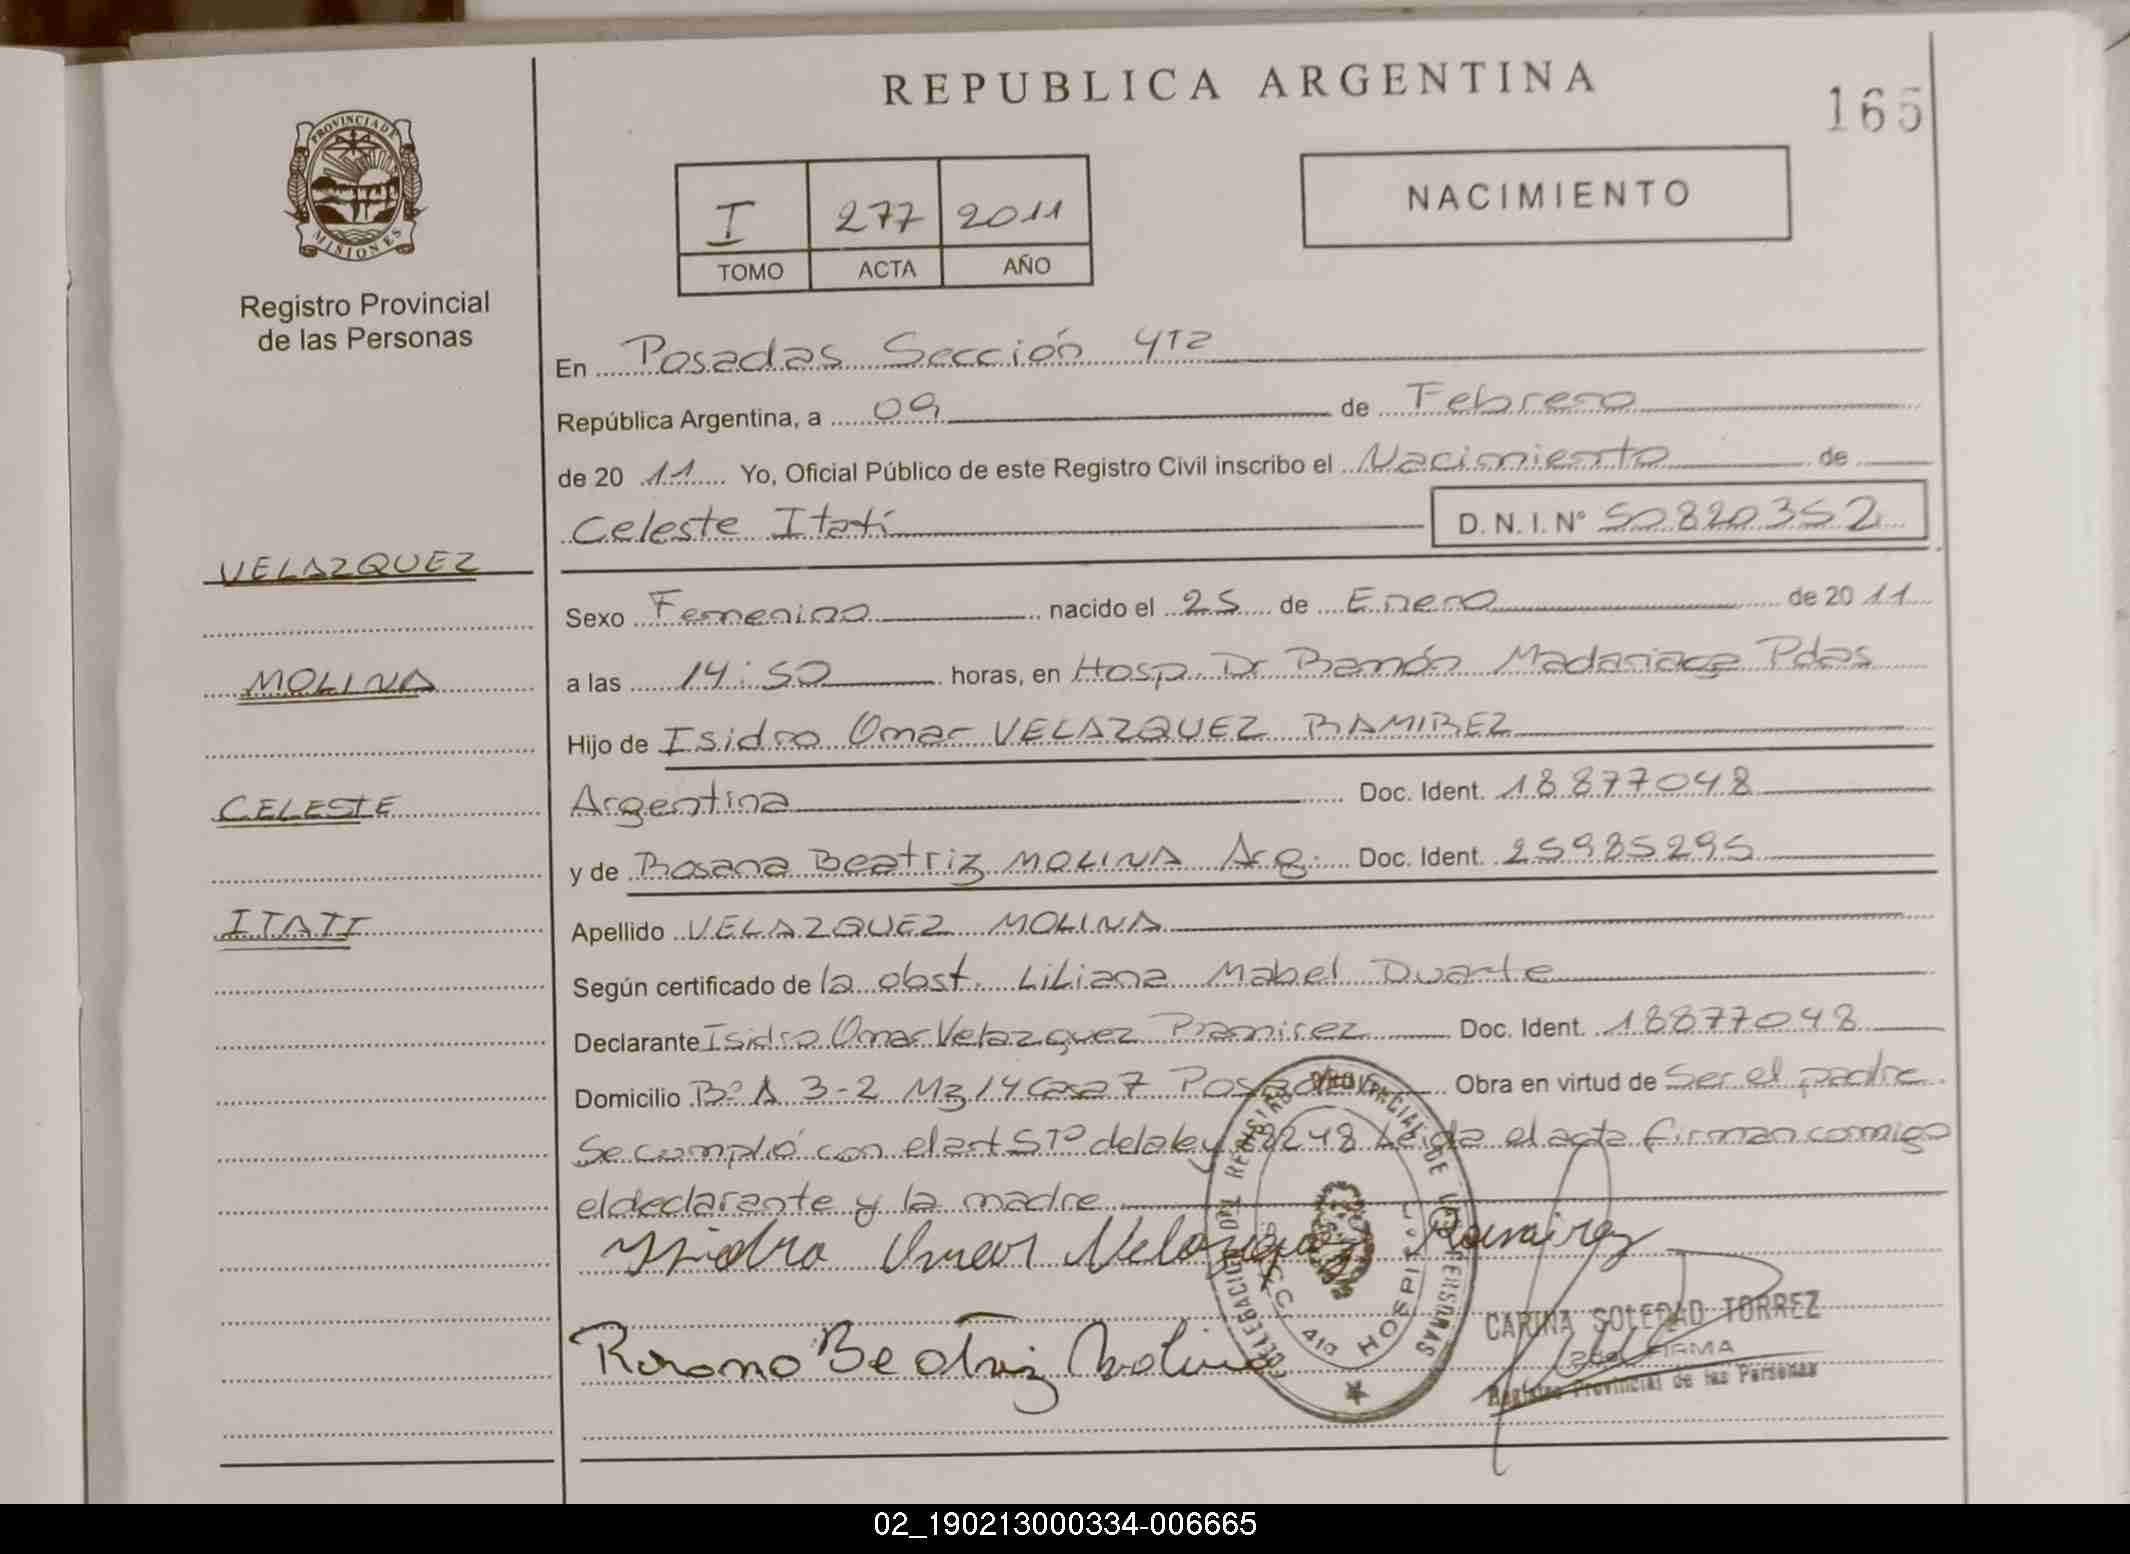 REPUBLICA ARGENTINA
165
PROVINCIA DE
MISIONES
Registro Provincial
de las Personas
I 277 2011
TOMO ACTA AÑO
NACIMIENTO
En Posadas Sección 4ta
República Argentina, a 09 de Febrero
de 20 11 Yo, Oficial Público de este Registro Civil inscribo el Nacimiento de
Celeste Itatí D.N.I.Nº 50820352
VELAZQUEZ
Sexo Femenino nacido el 25 de Enero de 20 11
MOLINA
a las 14:50 horas, en Hosp. Dr Ramón Madariaga Pdas
Hijo de Isidro Omar VELAZQUEZ RAMIREZ
CELESTE
Argentina Doc. Ident. 18877048
y de Rosana Beatriz MOLINA Arg. Doc. Ident. 25985295
ITATI
Apellido VELAZQUEZ MOLINA
Según certificado de la obst. Liliana Mabel Duarte
Declarante Isidro Omar Velazquez Ramirez Doc. Ident. 18877048
Domicilio Bº A 3-2 Mz 14 Casa 7 Posadas Obra en virtud de Ser el padre
Se cumplió con el art 5to de la ley 18248 Leida el acta firman conmigo
el declarante y la madre
Isidro Omar Velazquez Ramirez
Rosana Beatriz Molina
REGISTRO PROVINCIAL DE LAS PERSONAS
HOSPITAL
CARINA SOLEDAD TORREZ
2da FIRMA
Registro Provincial de las Personas
02_190213000334-006665